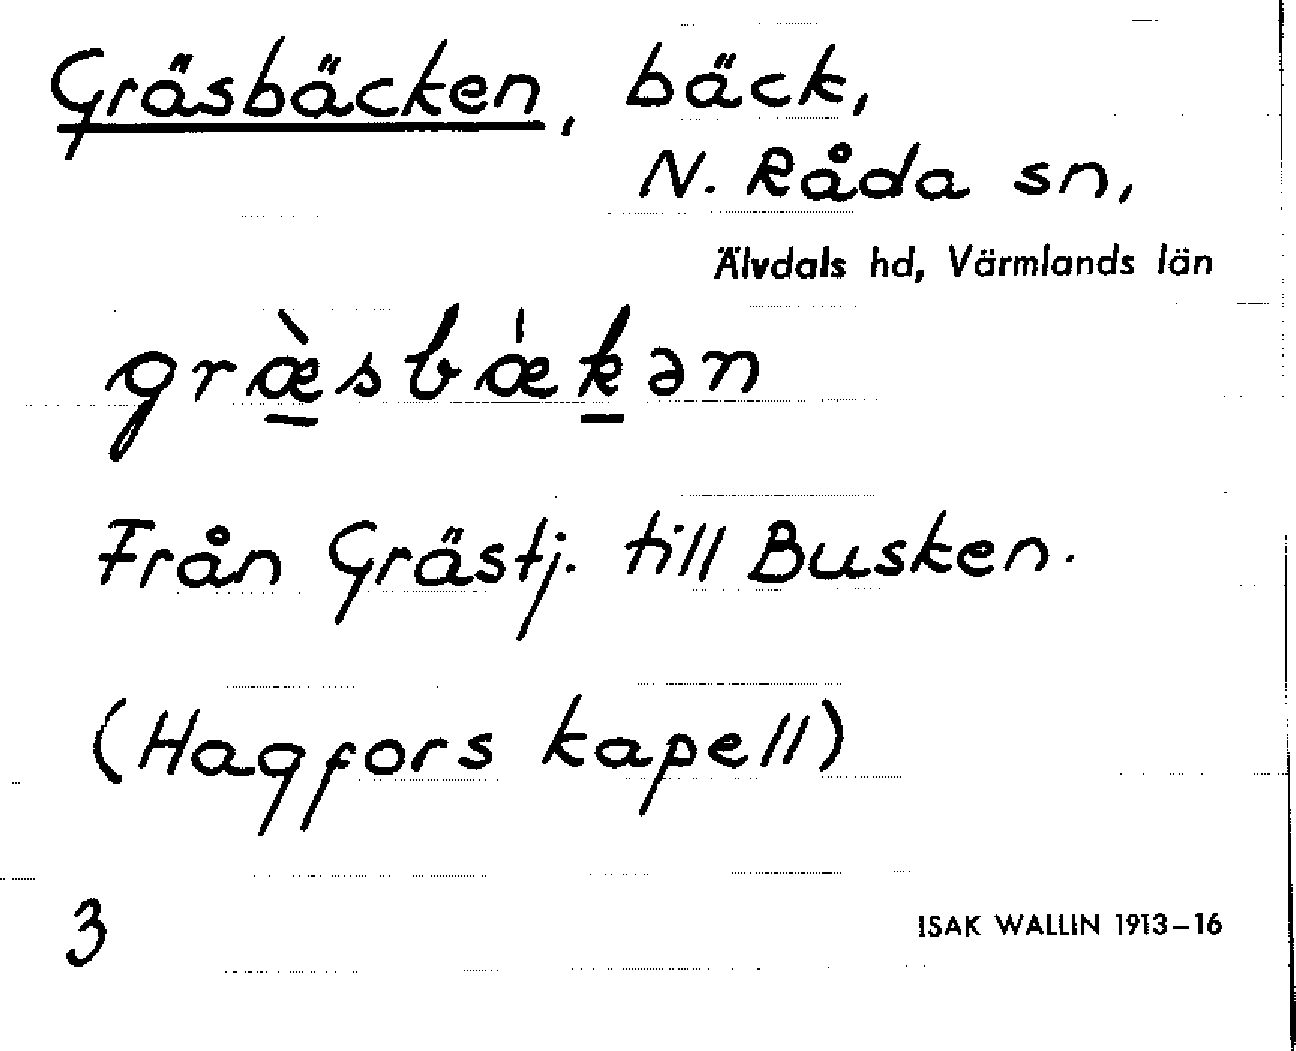 Gräsbäcken, bäck,
N. Råda sn,
Älvdals hd, Värmlands län
græ̠̀sbǽk̠ən
Från Grästj. till Busken.
(Hagfors kapell)
3
ISAK WALLIN 1913–16